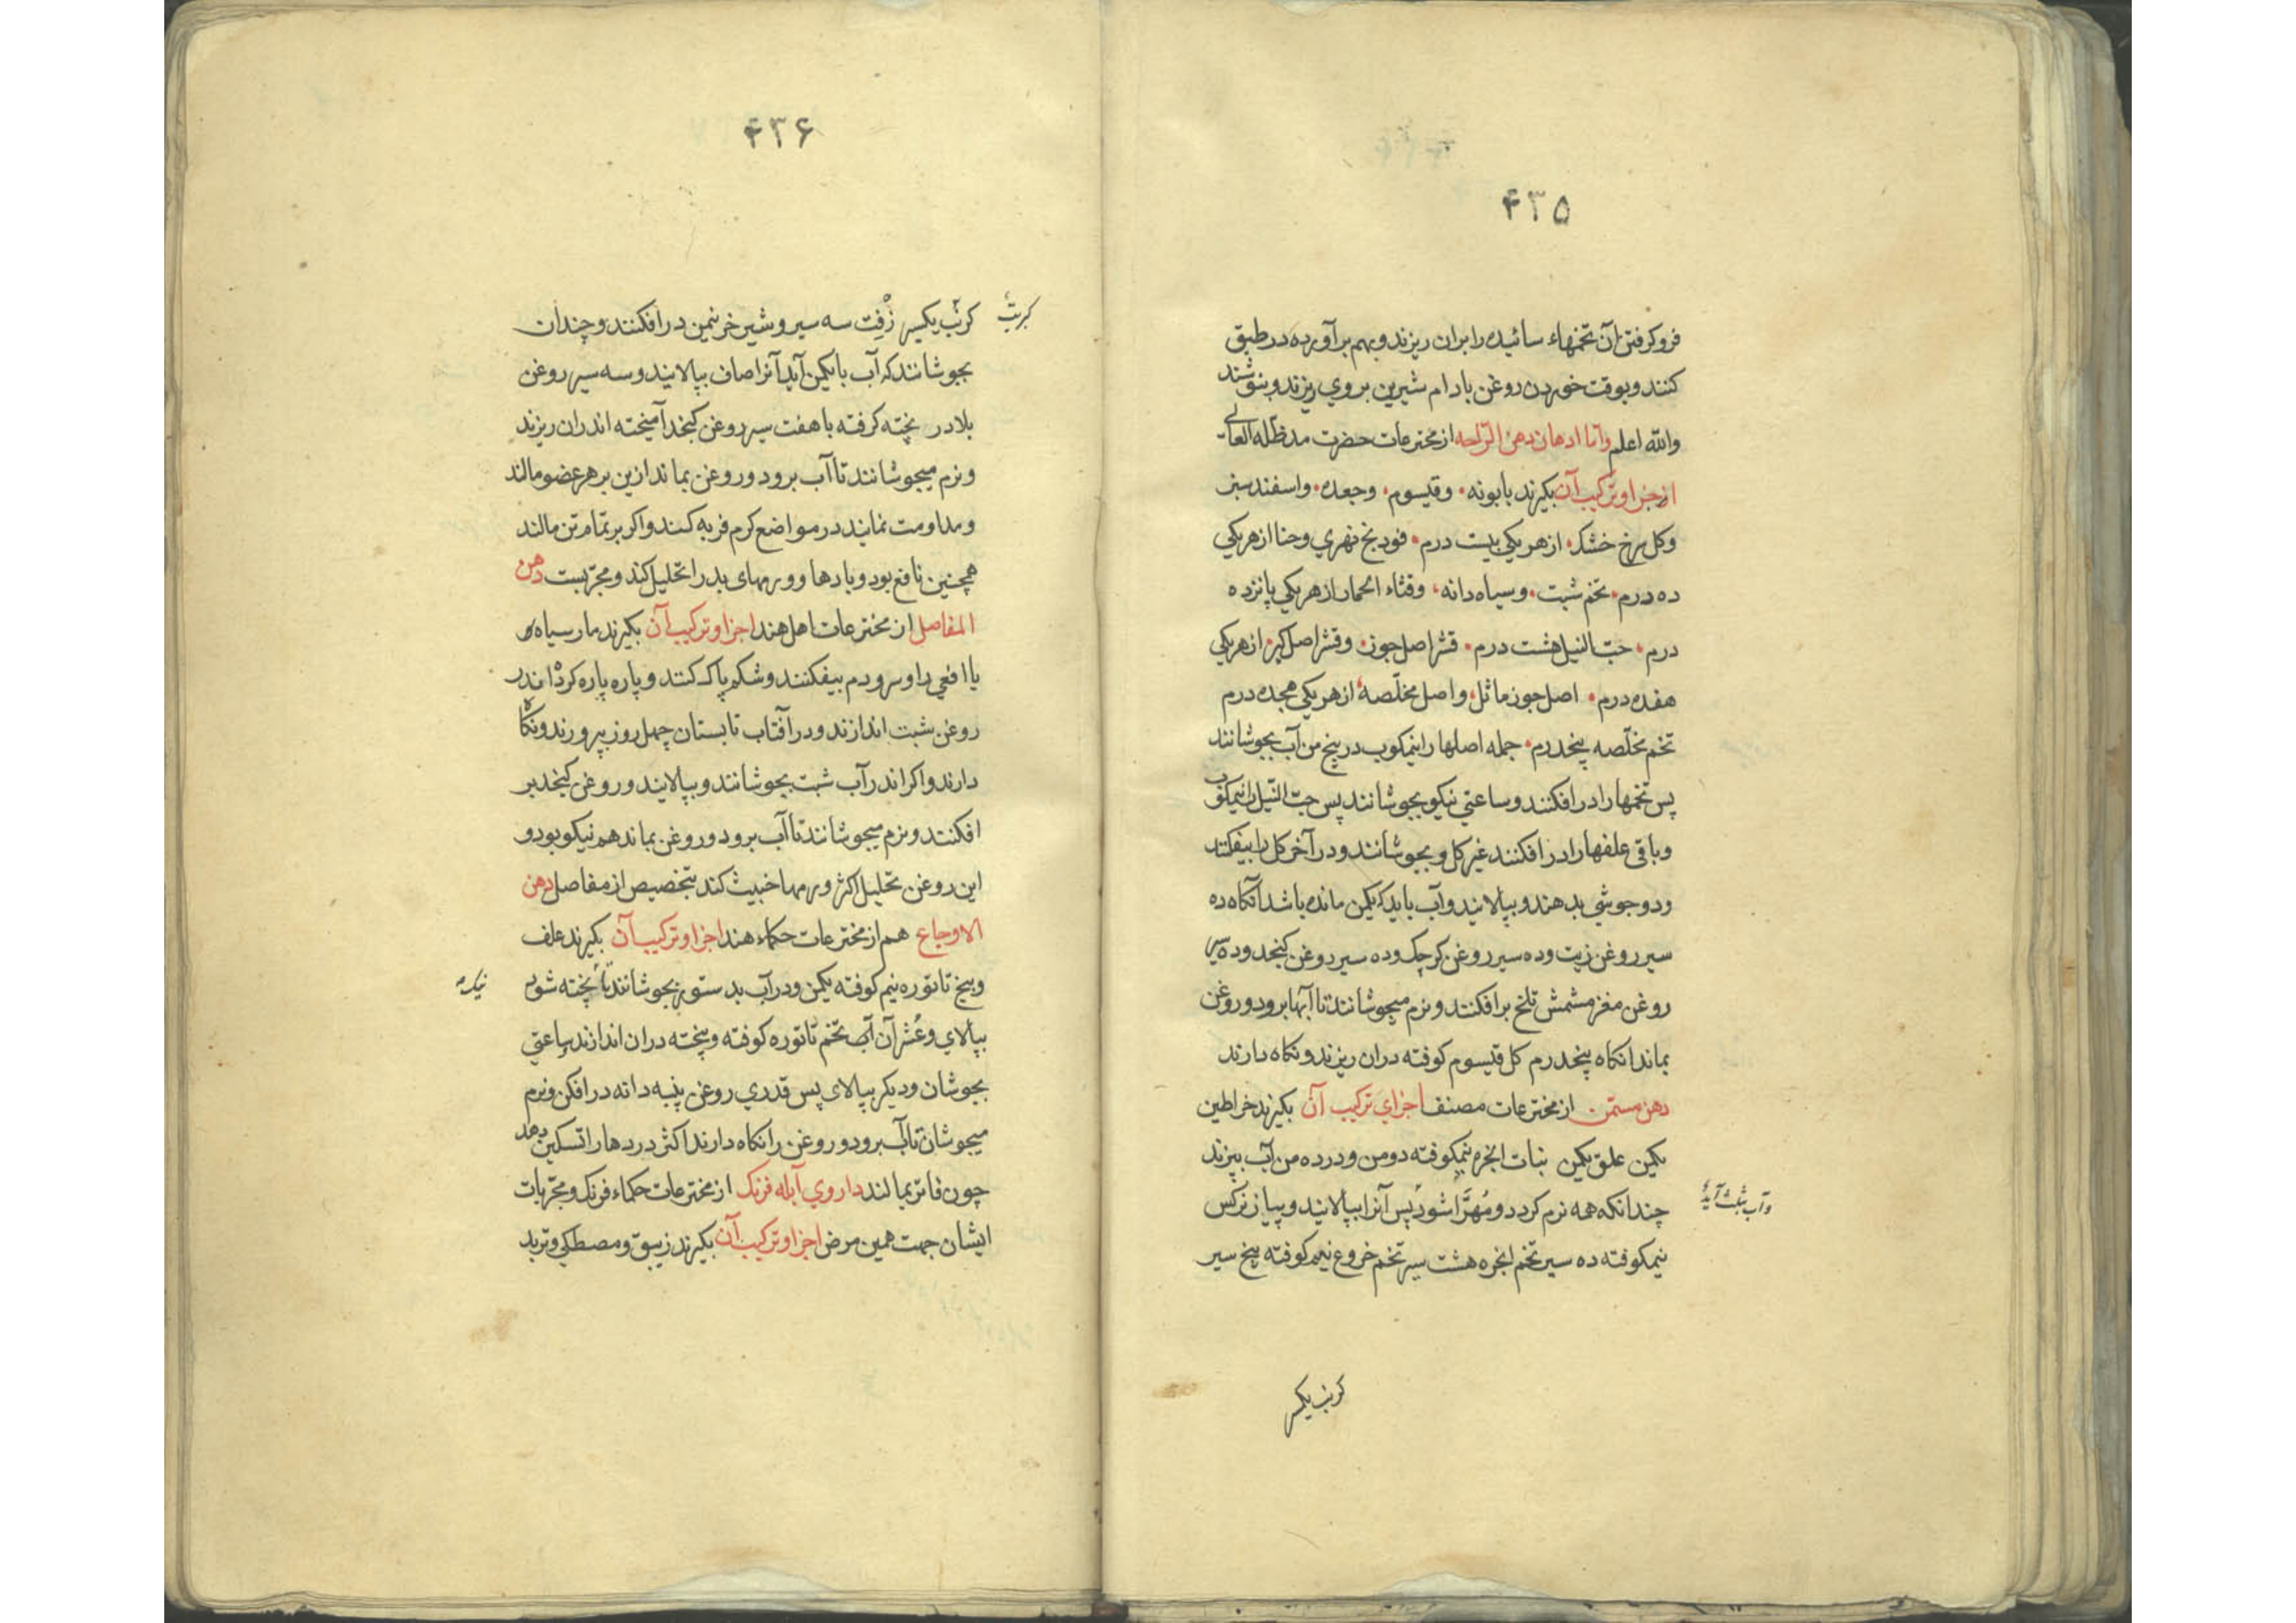 ۴۳۵
فرو کرفتن آن تخمهاء سائیده را بران ریزند و بهم برآورده در طبق
کنند و بوقت خوردن روغن بادام شیرین بروی ریزند و بنوشند
والله اعلم واما ادهان دهن الراحه از مخترعات حضرت مدظله العالی
اجزا و ترکیب آن بکیرند بابونه وقیسوم وجعده واسفند سبز
وکل سرخ خشک از هر یکی بیست درم فودنج نهری وحنا از هر یکی
ده درم تخم شبت وسیاه دانه وقثاء الحمار از هر یکی پانزده
درم حب النیل هشت درم قشر اصل جوز وقشر اصل کبر از هر یکی
هفده درم اصل جوز ماثل واصل مخلّصه از هر یکی هجده درم
تخم مخلّصه پنجدرم جمله اصلها را نیمکوب در پنج من آب بجوشانند
پس تخمها را درافکنند وساعتی نیکو بجوشانند پس حب النیل را نیمکوب
وباقی علفها را درافکنند غیر کل وبجوشانند ودر آخر کل را بیفکنند
ودو جوشی بدهند وبپالایند وآب باید که یکمن مانده باشد آنکاه ده
سیر روغن زیت وده سیر روغن کرچک وده سیر روغن کنجد وده سیر
روغن مغز مشمش تلخ برافکنند ونرم میجوشانند تا آبها برود وروغن
بماند انکاه پنجدرم کل قیسوم کوفته دران ریزند ونکاه دارند
دهن مسمّن از مخترعات مصنف اجزای ترکیب آن بکیرند خراطین
یکمن علق یکمن بنات انجره نیمکوفته دو من ودر ده من آب بپزند
چندانکه همه نرم کردد ومهرّا شود پس آنرا بپالایند وپیاز نرکس
وآب بثلث آید
نیمکوفته ده سیر تخم انجره هشت سیر تخم خروع نیمکوفته پنج سیر
کرنب یکسیر
۴۳۶
کرنب یکسیر زفت سه سیر وشیر خر نیمن درافکنند وچندان
کبریت
بجوشانند که آب با یکمن آید آنرا صاف بپالایند وسه سیر روغن
بلادر پخته کرفته با هفت سیر روغن کنجد آمیخته اندران ریزند
ونرم میجوشانند تا آب برود وروغن بماند ازین بر هر عضو مالند
ومداومت نمایند در مواضع کرم فربه کند واکر بر تمام تن مالند
همچنین نافع بود وبادها وورمهای بد را تحلیل کند ومجربست دهن
المفاصل از مخترعات اهل هند اجزا وترکیب آن بکیرند مار سیاه
یا افعی را وسر ودم بیفکنند وشکم پاک کنند وپاره پاره کرده اندر
روغن شبت اندازند ودر آفتاب تابستان چهل روز بپرورند ونکاه
دارند واکر اندر آب شبت بجوشانند وبپالایند وروغن کنجد بر
افکنند ونرم میجوشانند تا آب برود وروغن بماند هم نیکو بود و
این روغن تحلیل اکثر ورمها خبیث کند بتخصیص از مفاصل دهن
الاوجاع هم از مخترعات حکماء هند اجزا وترکیب آن بکیرند علف
وبیخ تاتوره نیم کوفته یکمن ودر آب بدستور بجوشانند تا پخته شود
بپالای وعشر آن آب تخم تاتوره کوفته وپخته دران اندازند ساعتی
بجوشان ودیکر بپالای پس قدری روغن پنبه دانه درافکن ونرم
میجوشان تا آب برود وروغن را نکاه دارند اکثر دردها را تسکین دهد
چون فاتر بمالند داروی آبله فرنک از مخترعات حکماء فرنک ومجربات
ایشان جهت همین مرض اجزا وترکیب آن بکیرند زیبق ومصطکی وتربد